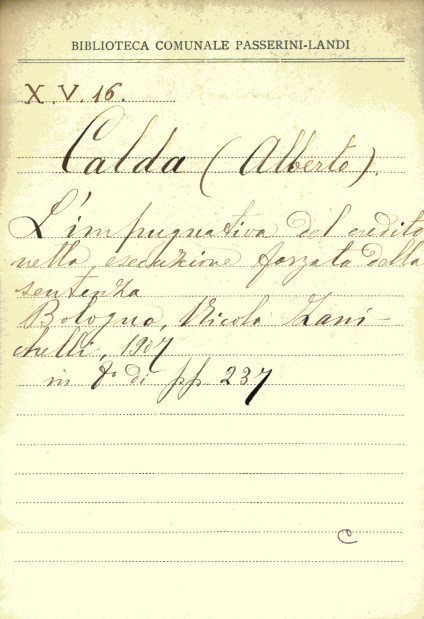 BIBLIOTECA COMUNALE PASSERINI-LANDI
X. V. 16.
Calda (Alberto).
L'impugnativa del credito
nella esecuzione forzata della
sentenza
Bologna, Nicola Zani-
chelli, 1907
in 8° di pp 237
C